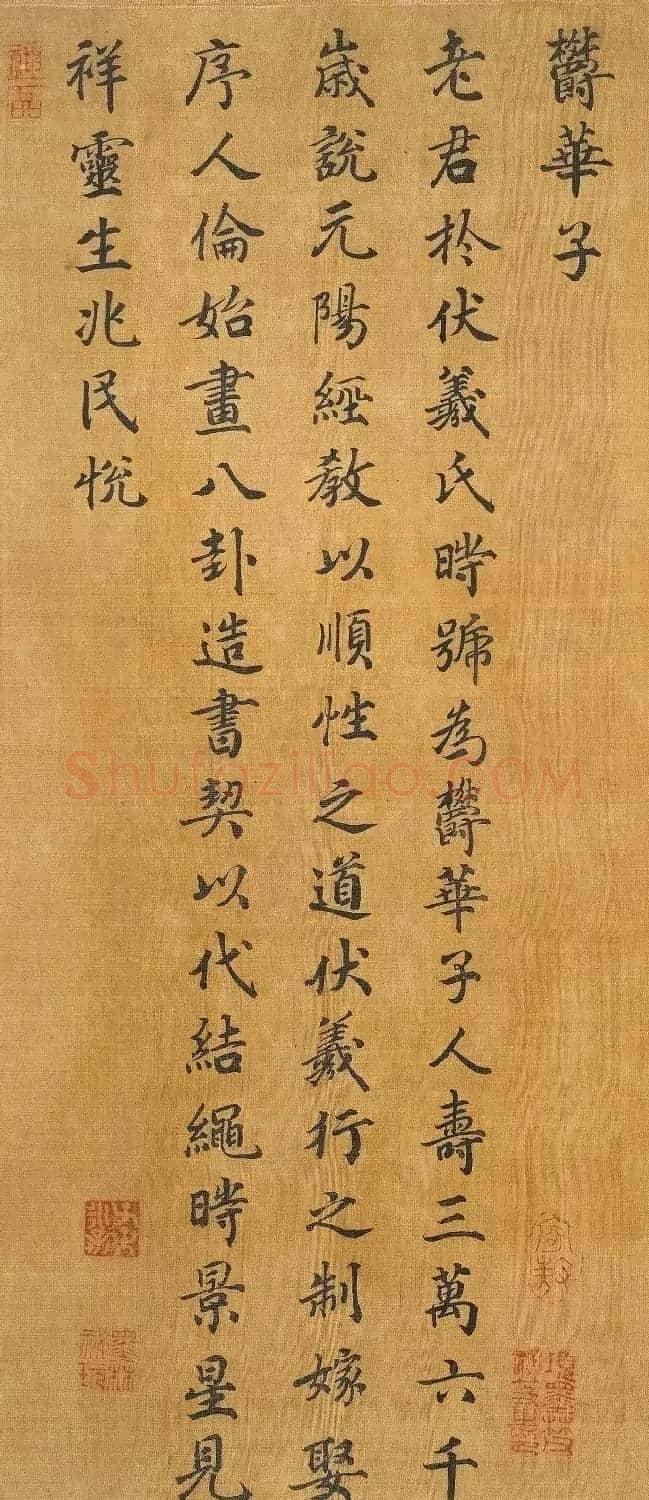 欝華子
老君於伏羲氏時號為欝華子人壽三萬六千
歲說元陽經教以順性之道伏羲行之制嫁娶
序人倫始畫八卦造書契以代結繩時景星見
祥靈生兆民悅
Shufaziliao.COM